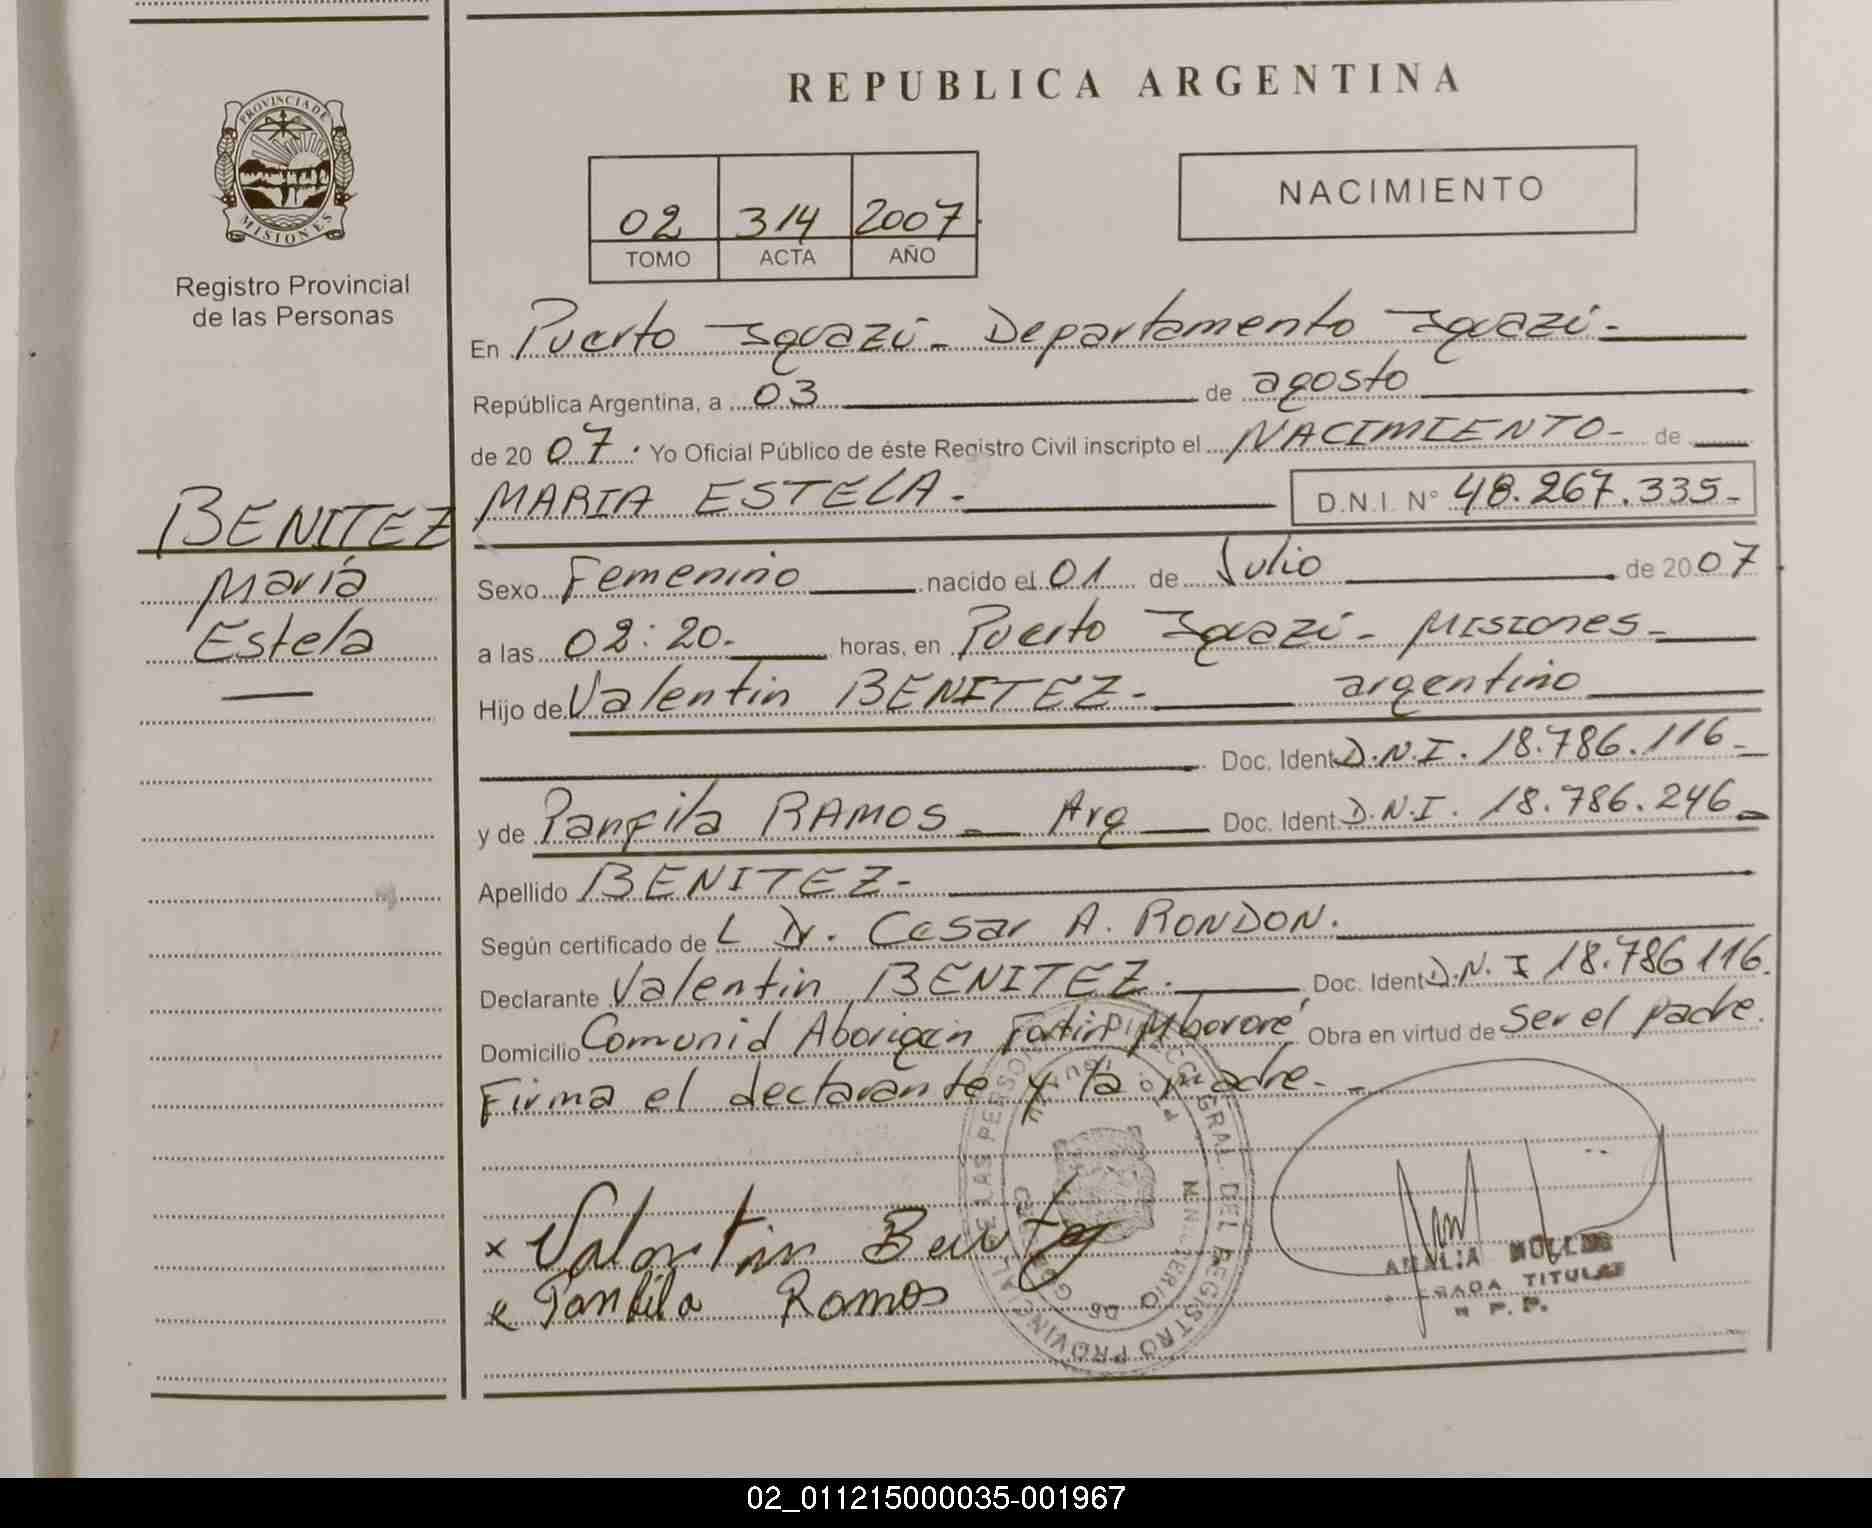 REPUBLICA ARGENTINA
PROVINCIA DE
MISIONES
Registro Provincial
de las Personas
02 314 2007
TOMO ACTA AÑO
NACIMIENTO
En Puerto Iguazú - Departamento Iguazú -
República Argentina, a 03 de agosto
de 20 07. Yo Oficial Público de éste Registro Civil inscripto el NACIMIENTO - de
MARIA ESTELA - D.N.I. Nº 48.267.335 -
BENITEZ
María
Estela
Sexo Femenino nacido el 01 de Julio de 20 07
a las 02:20 - horas, en Puerto Iguazú - Misiones -
Hijo de Valentin BENITEZ - argentino
Doc. Ident D.N.I. 18.786.116 -
y de Panfila RAMOS - Arg Doc. Ident. D.N.I. 18.786.246 -
Apellido BENITEZ -
Según certificado de L Dr. Cesar A. RONDON.
Declarante Valentin BENITEZ. Doc. Ident D.N.I 18.786 116.
Domicilio Comunid Aborigen Fortin Mbororé Obra en virtud de Ser el padre.
Firma el declarante y la madre -
x Valentin Benitez
x Panfila Ramos
DEL REGISTRO PROVINCIAL DE LAS PERSONAS
MINISTERIO DE
ANALIA
TITULAR
R P. P.
02_011215000035-001967